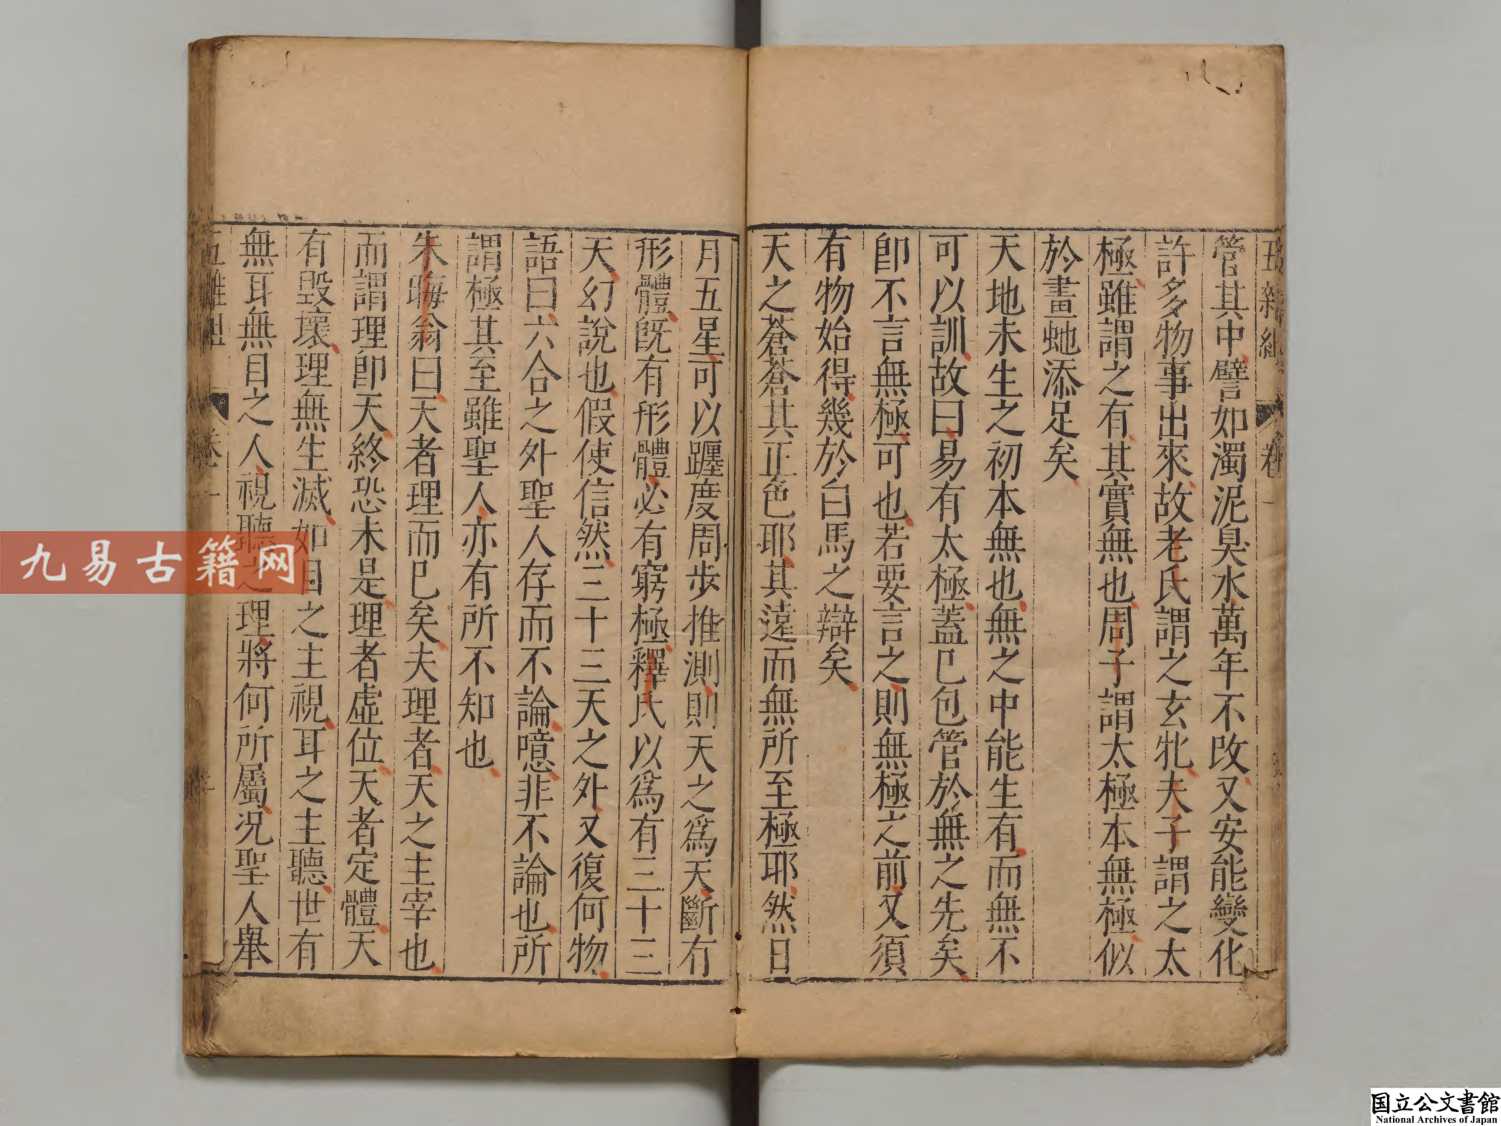 五雜組 卷一
管其中譬如濁泥臭水萬年不改又安能變化
許多物事出來故老氏謂之玄牝夫子謂之太
極雖謂之有其實無也周子謂太極本無極似
於畫虵添足矣
天地未生之初本無也無之中能生有而無不
可以訓故曰易有太極蓋已包管於無之先矣
卽不言無極可也若要言之則無極之前又須
有物始得幾於白馬之辯矣
天之蒼蒼其正色耶其遠而無所至極耶然日
月五星可以躔度周步推測則天之爲天斷有
形體旣有形體必有窮極釋氏以爲有三十三
天幻說也假使信然三十三天之外又復何物
語曰六合之外聖人存而不論噫非不論也所
謂極其至雖聖人亦有所不知也
朱晦翁曰天者理而已矣夫理者天之主宰也
而謂理卽天終恐未是理者虛位天者定體天
有毀壞理無生滅如目之主視耳之主聽世有
無耳無目之人視聽之理將何所屬况聖人舉
五雜組 卷一
九易古籍网
国立公文書館
National Archives of Japan